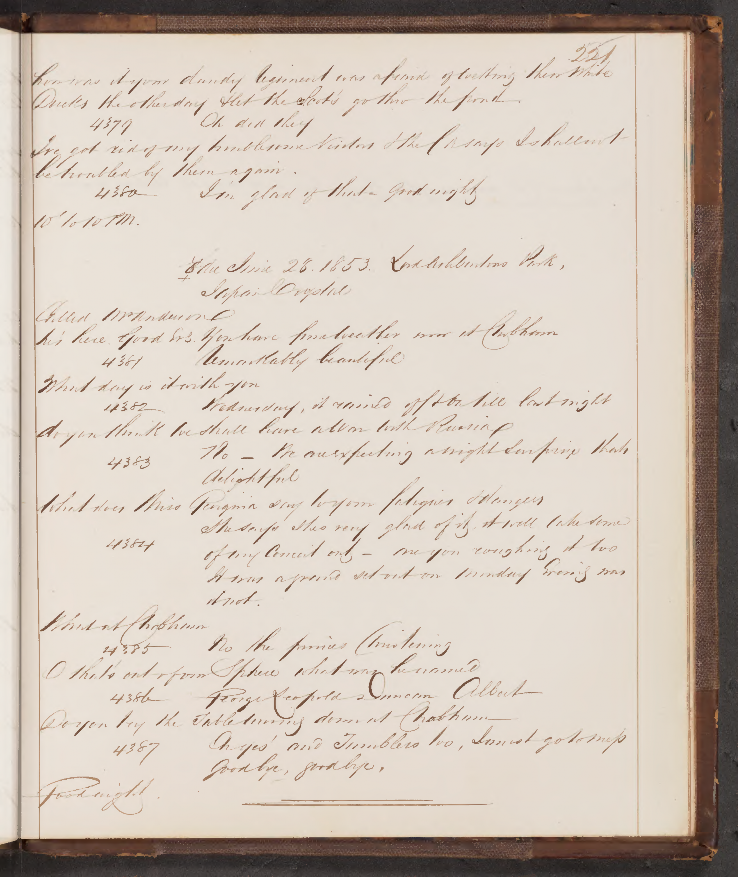 221
how was it your dandy Regiment was afraid of wetting their White
Ducks the other day & let the Scot's go thro the pond.
4379 Oh did they
I've got rid of my troublesome Visitors & the CA says I shall not
be troubled by them again.
4380 I'm glad of that – Good night
10' to 10 PM.
June 28. 1853. Lord Ashburtons Park,
Crystal
Called Mr Anderson
he's here Good Evg. You have fine weather now at Chobham
4381 Remarkably beautiful
What day is it with you
4382 Wednesday, it rained off & on till last night
do you think we shall have a War with Russia
4383 No – We are expecting a night Surprise thats
delightful
What does Miss say to your fatigues & dangers
4384 She says she's very glad of it, it will take some
of my Conceit out – are you roughing it too
It was a grand set out on Tuesday Evening was
it not.
What at Chobham
4385 No the princes Christening
O that's out of your Sphere what was he named
4386 George Leopold Duncan Albert
Do you try the Table turning down at Chobham
4387 Oh yes' and Tumblers too, I must go to mess
Good bye, good bye.
Good night.